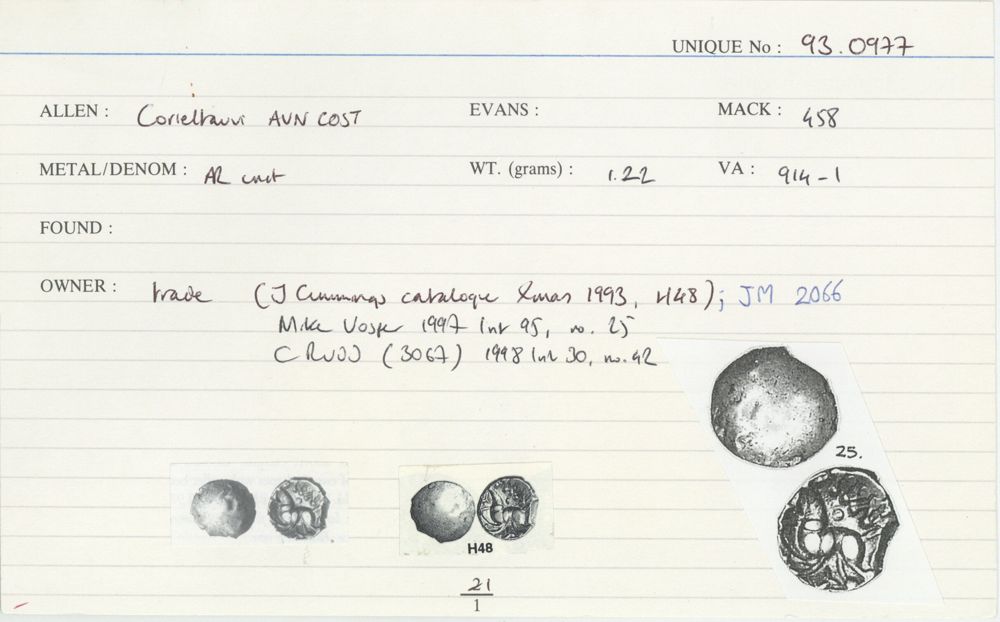 UNIQUE No : 93.0977
ALLEN : Corieltauvi AVN COST EVANS : MACK : 458
METAL/DENOM : AR unit WT. (grams) : 1.22 VA : 914-1
FOUND :
OWNER : trade (J Cummings catalogue Xmas 1993, H48); JM 2066
Mike Vosper 1997 list 95, no. 25
C RUDD (3067) 1998 list 30, no. 42
25.
H48
21
1